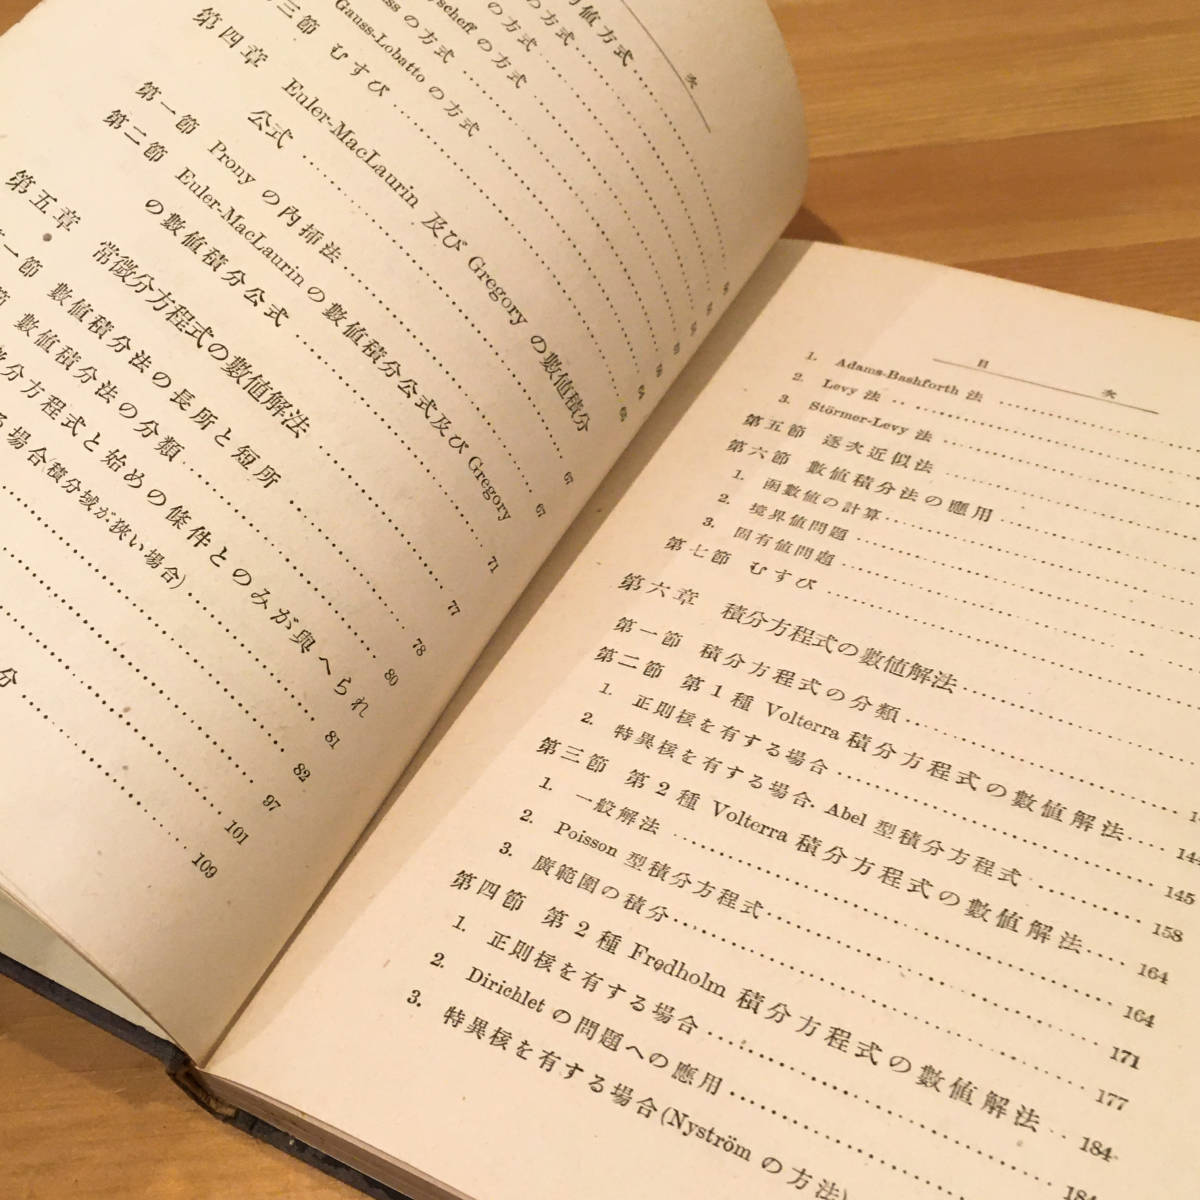 次
値方式
の方式
の方式
scheff の方式
ss の方式
Gauss-Lobatto の方式
三節 むすび
第四章 Euler-MacLaurin 及び Gregory の數値積分
公式
第一節 Prony の內揷法 67
第二節 Euler-MacLaurin の數値積分公式及び Gregory
の數値積分公式 71
第五章 常微分方程式の數値解法 77
第一節 數値積分法の長所と短所 78
節 數値積分法の分類 80
分方程式と始めの條件とのみが與へられ
る場合(積分域が狹い場合) 81
82
97
101
分 109
目 次
1. Adams-Bashforth 法
2. Levy 法
3. Störmer-Levy 法
第五節 逐次近似法
第六節 數値積分法の應用
1. 函數値の計算
2. 境界値問題
3. 固有値問題
第七節 むすび
第六章 積分方程式の數値解法
第一節 積分方程式の分類
第二節 第1種 Volterra 積分方程式の數値解法 144
1. 正則核を有する場合 145
2. 特異核を有する場合, Abel 型積分方程式 158
第三節 第2種 Volterra 積分方程式の數値解法 164
1. 一般解法 164
2. Poisson 型積分方程式 171
3. 廣範圍の積分 177
第四節 第2種 Fredholm 積分方程式の數値解法 184
1. 正則核を有する場合 184
2. Dirichlet の問題への應用
3. 特異核を有する場合(Nyström の方法)